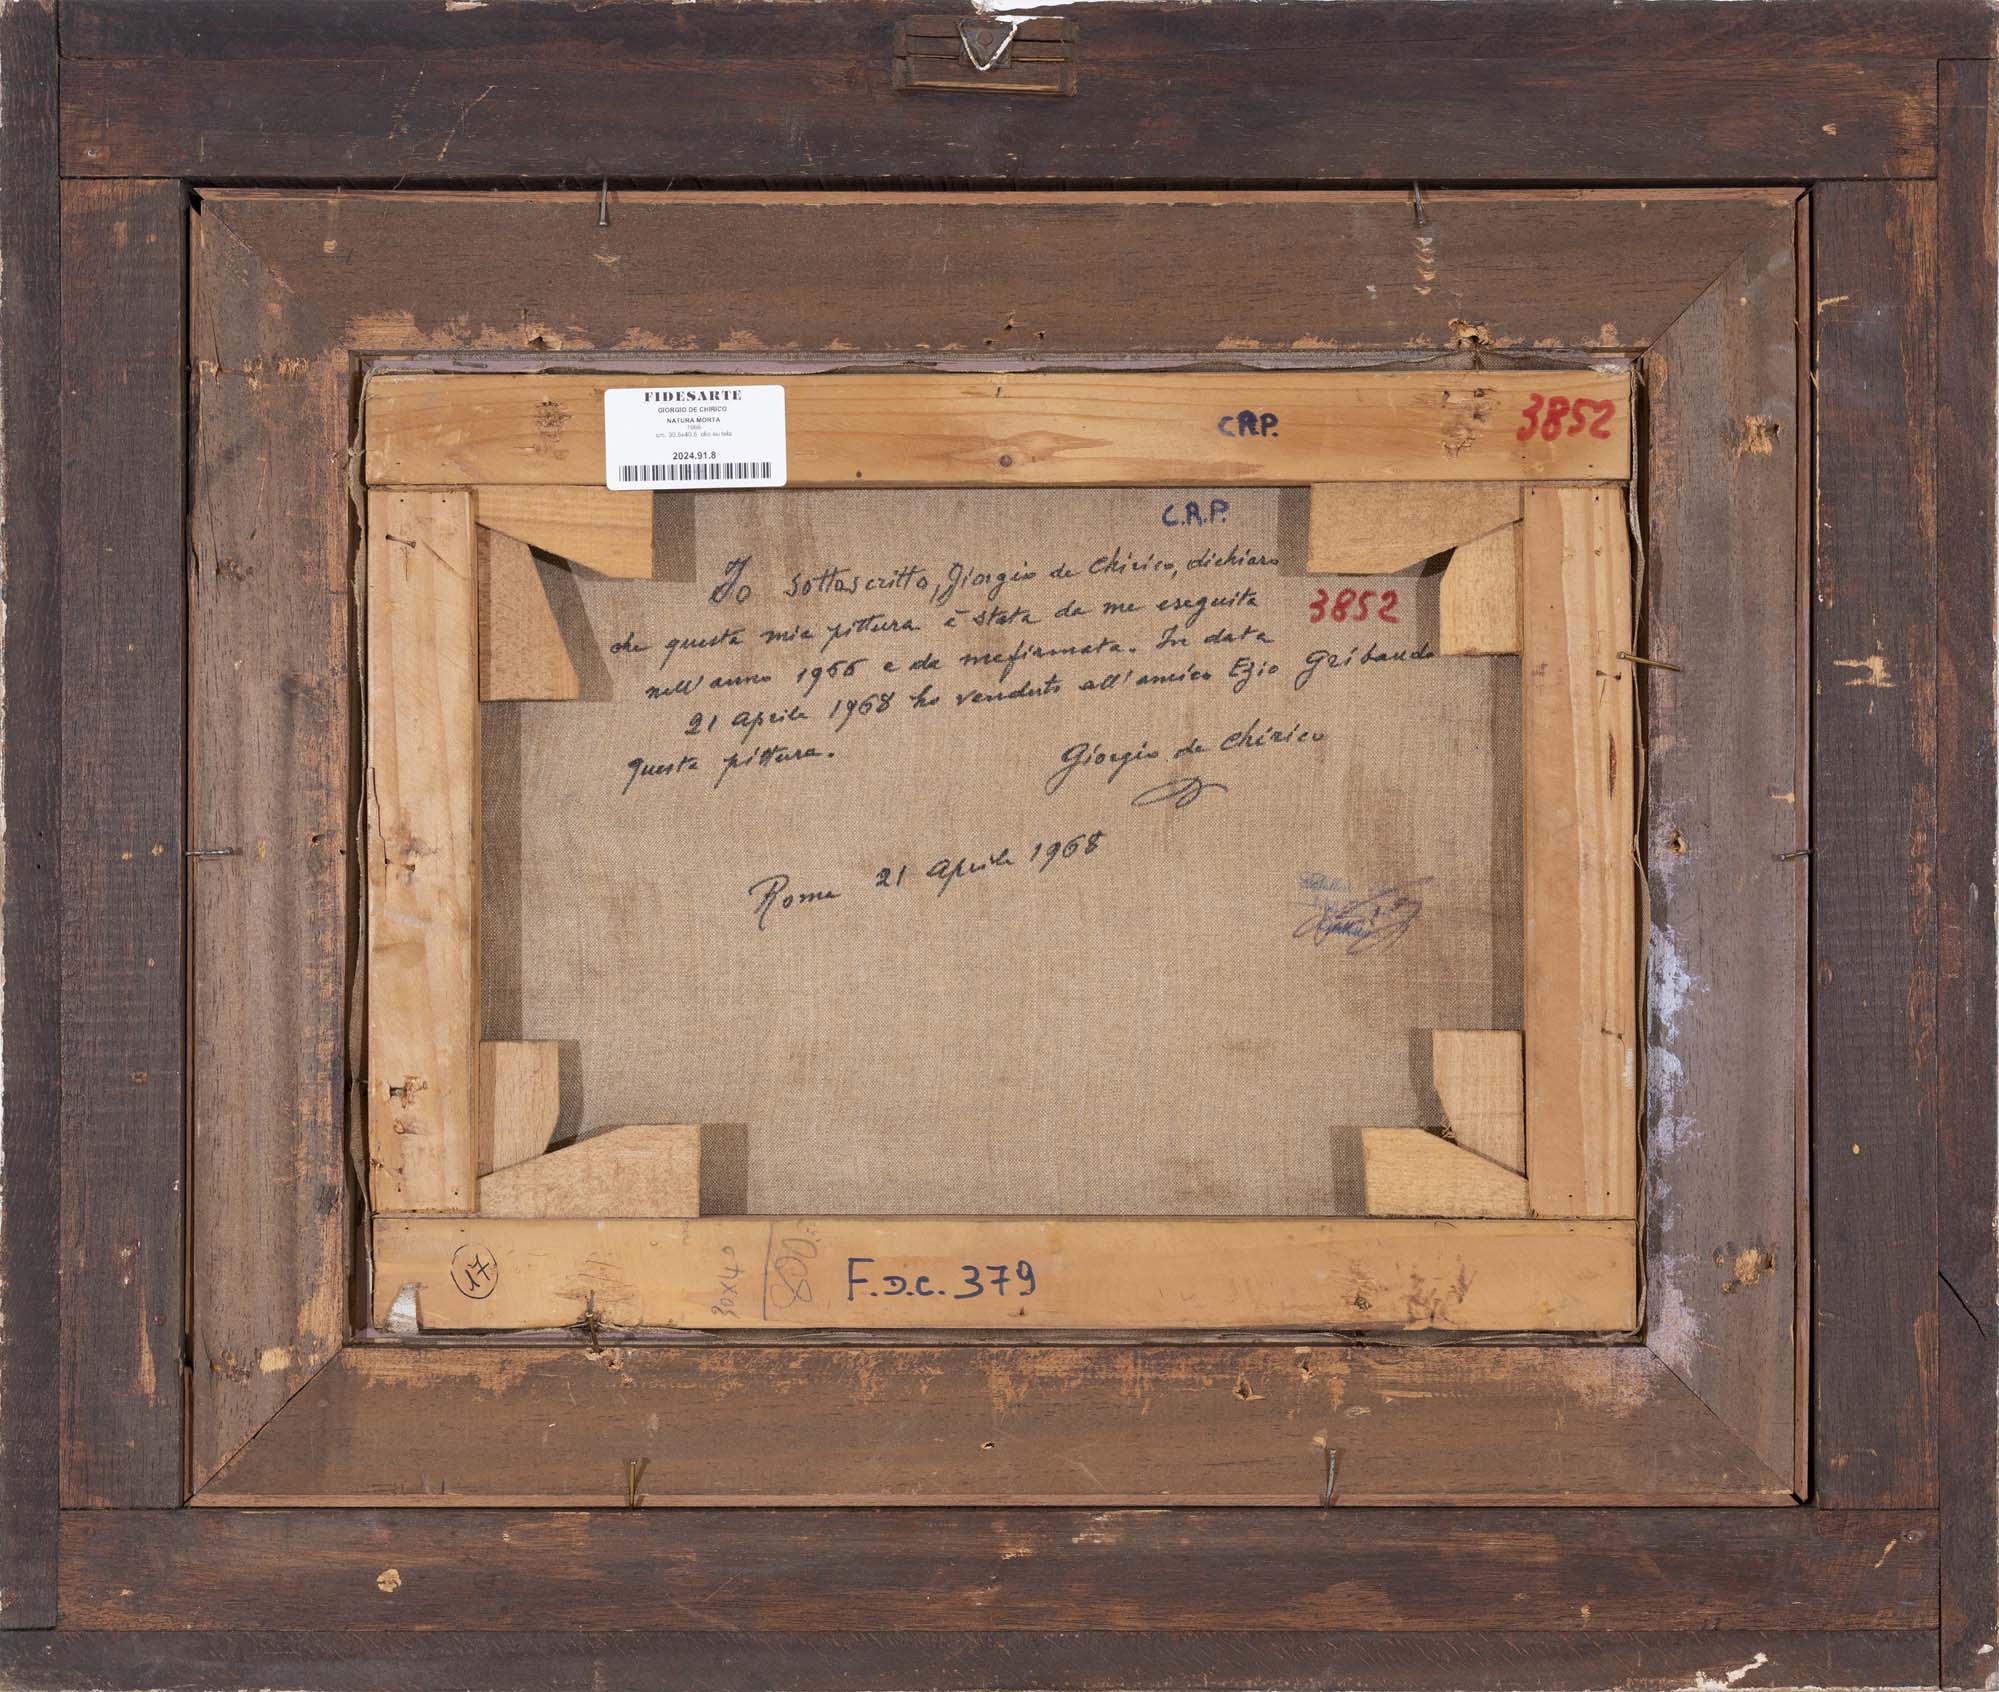 FIDESARTE
GIORGIO DE CHIRICO
NATURA MORTA
1966
cm. 30.5x40.5 olio su tela
2024.91.8
C.A.P.
3852
C.A.P.
Io sottoscritto, Giorgio de Chirico, dichiaro
che questa mia pittura è stata da me eseguita
3852
nell'anno 1966 e da me firmata. In data
21 aprile 1968 ho venduto all'amico Ezio Gribaudo
questa pittura.
Giorgio de Chirico
Roma 21 aprile 1968
17
30x40
800
F.D.C. 379